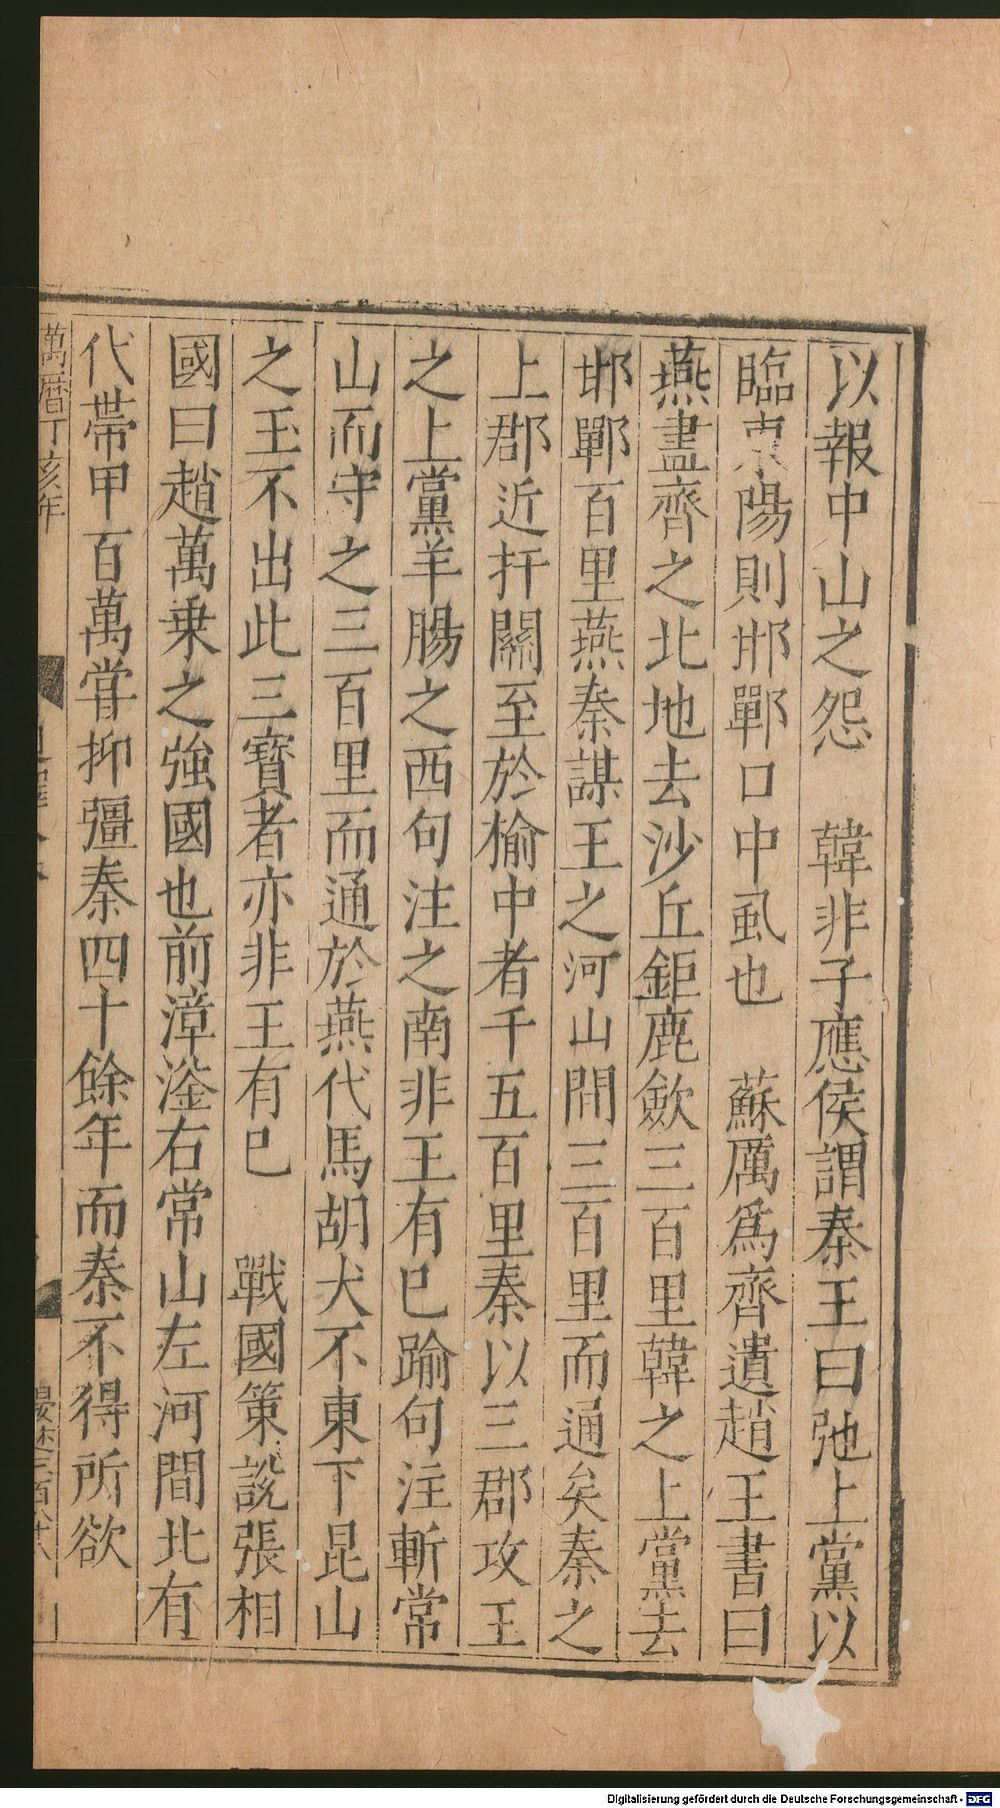 以報中山之怨　韓非子應侯謂秦王曰弛上黨以
臨東陽則邯鄲口中虱也　蘇厲爲齊遺趙王書曰
燕盡齊之北地去沙丘鉅鹿歛三百里韓之上黨去
邯鄲百里燕秦謀王之河山間三百里而通矣秦之
上郡近扞關至於榆中者千五百里秦以三郡攻王
之上黨羊腸之西句注之南非王有已踰句注斬常
山而守之三百里而通於燕代馬胡犬不東下昆山
之玉不出此三寶者亦非王有已　戰國策說張相
國曰趙萬乗之強國也前漳滏右常山左河間北有
代帶甲百萬甞抑彊秦四十餘年而秦不得所欲
萬曆丁亥年
Digitalisierung gefördert durch die Deutsche Forschungsgemeinschaft - DFG